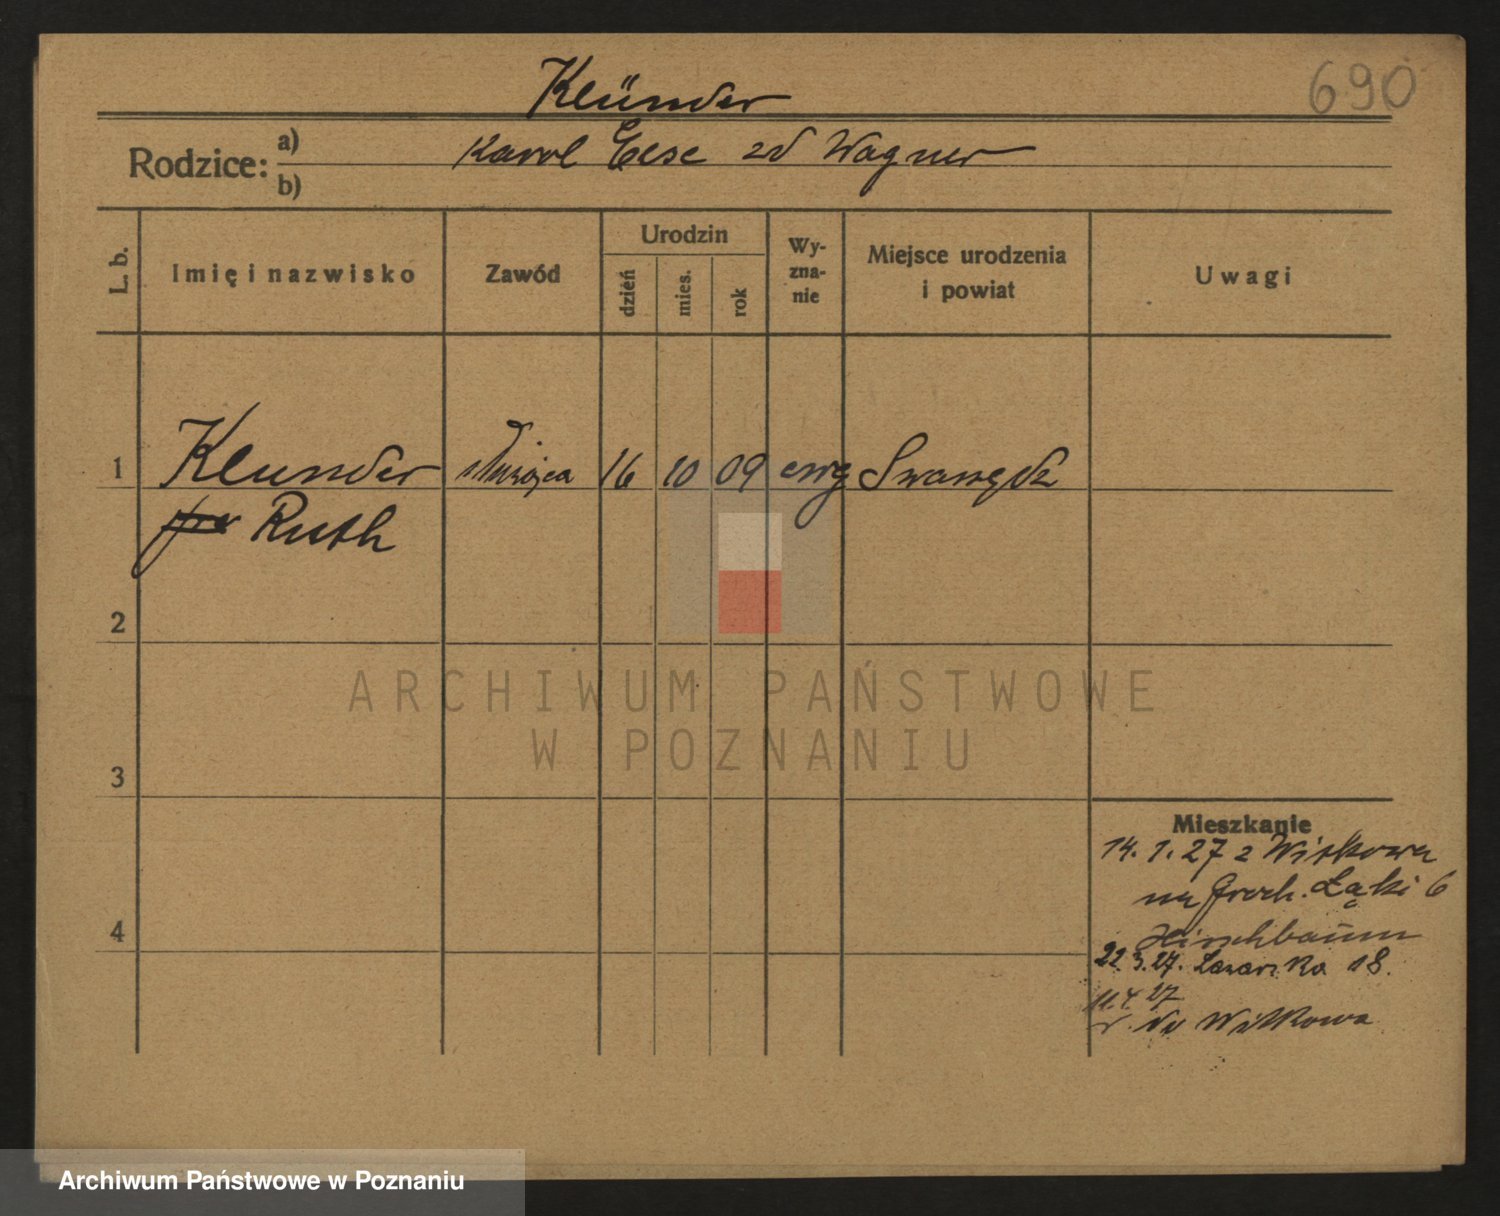 690
Klünder
Rodzice: a) Karol Else zd Wagner
b)
L. b.
Imię i nazwisko
Zawód
Urodzin
dzień
mies.
rok
Wy-
zna-
nie
Miejsce urodzenia
i powiat
Uwagi
1 Klunder służąca 16 10 09 ewg
Ruth
2
3
4
Mieszkanie
14. 1. 27 z Witkowa
na Groch. Łąki 6
Hirschbaum
22 3. 27. 18.
11.4 27
w. do Witkowa
ARCHIWUM PAŃSTWOWE
W POZNANIU
Archiwum Państwowe w Poznaniu